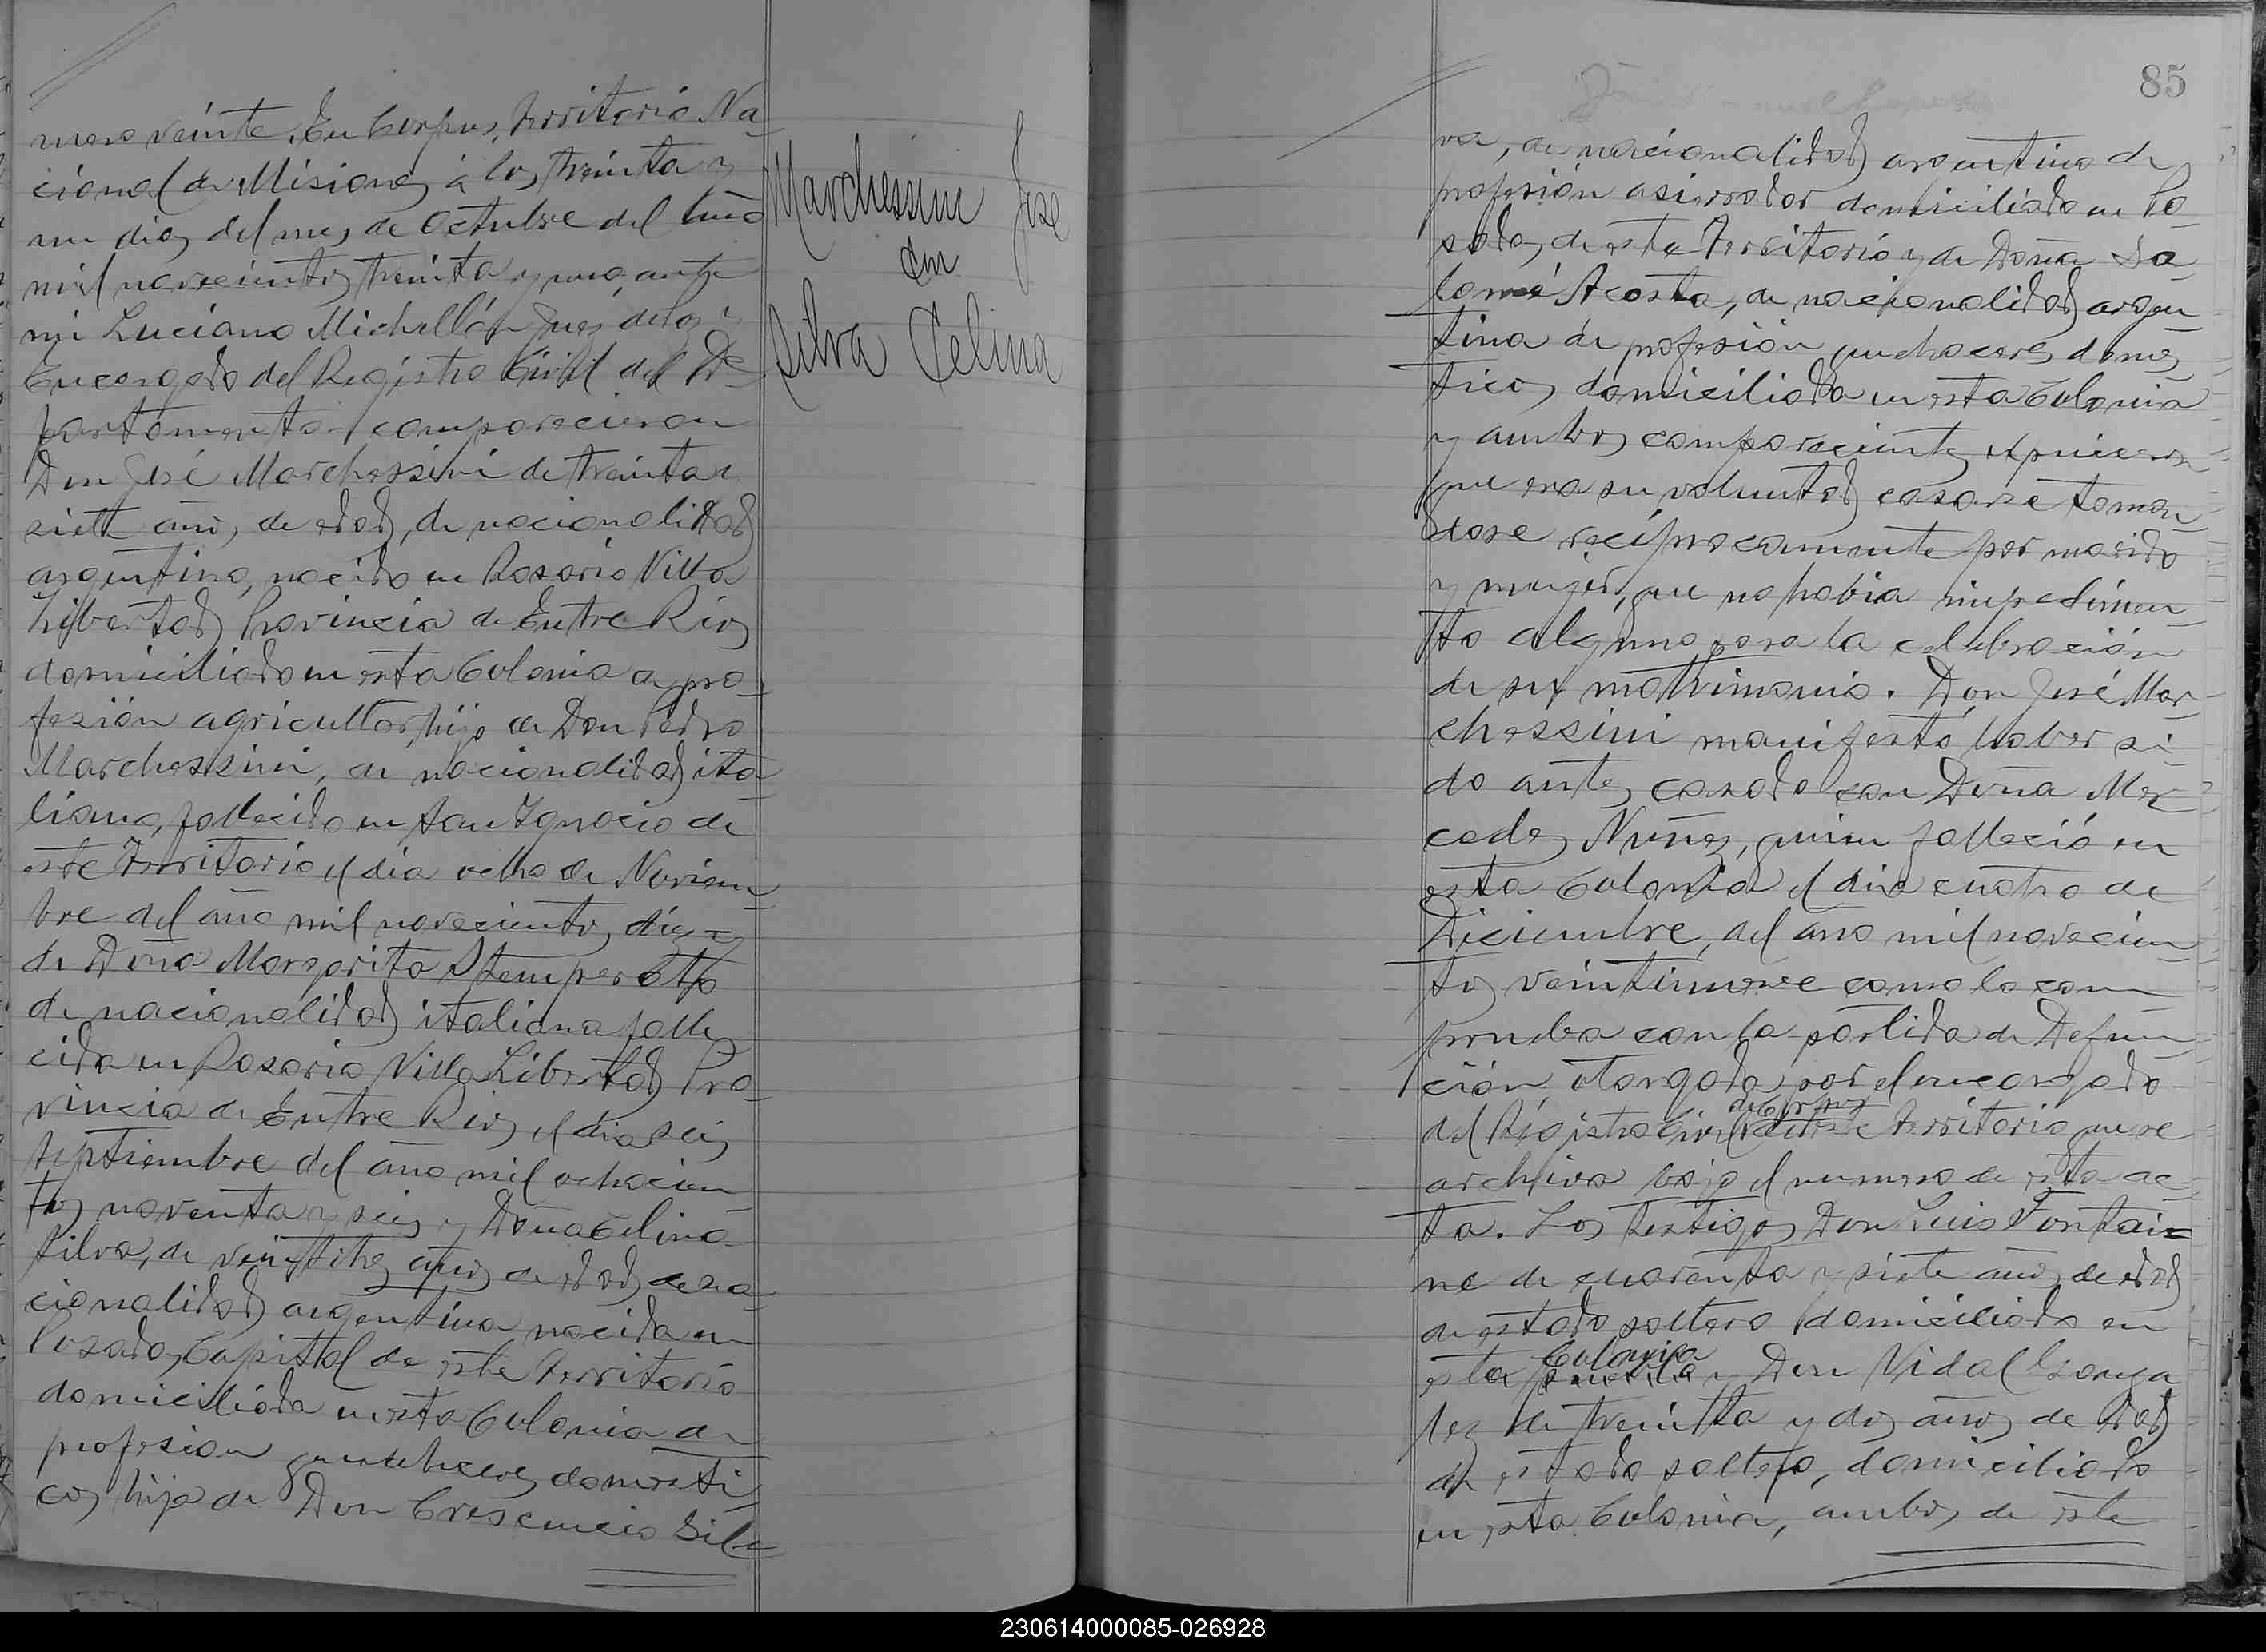 mero veinte. En Corpus, Territorio Na-
cional de Misiones á los treinta y
un dias del mes de Octubre del año
mil novecientos treinta y uno, ante
mi Luciano Michellón Juez de Paz y
Encargado del Registro Civil del De-
partamento comparecieron
Don José Marchessini de treinta y
siete años de edad, de nacionalidad
argentino, nacido en Rosario Villa
Libertad Provincia de Entre Rios
domiciliado en esta Colonia de pro-
fesión agricultor, hijo de Don Pedro
Marchessini, de nacionalidad ita-
liano, fallecido en San Ignacio de
este Territorio el dia ocho de Noviem-
bre del año mil novecientos diez y
de Doña Margarita Stemperetto
de nacionalidad italiana falle-
cida en Rosario Villa Libertad Pro-
vincia de Entre Rios el dia seis
Septiembre del año mil ochocien-
tos noventa y seis y Doña Celina
Silva, de veintitres años de edad de na-
cionalidad argentina nacida en
Posadas, Capital de este Territorio
domiciliada en esta Colonia de
profesion quehaceres domesti-
cos, hija de Don Crescencio Sil-
Marchessini José
con
Silva Celina
85
va, de nacionalidad argentino de
profesión aserrador domiciliado en Po-
sadas, de este Territorio y de Doña Sa-
lomé Acosta, de nacionalidad argen-
tina de profesión quehaceres domes-
ticos domiciliada en esta Colonia
y ambos comparecientes expusieron
que era su voluntad casarse toman-
dose recíprocamente por marido
y mujer, que no habia impedimen-
to alguno para la celebración
de su matrimonio. Don José Mar-
chessini manifestó haber si-
do antes casado con Doña Mer-
cedes Nuñez, quien falleció en
esta Colonia el dia cuatro de
Diciembre, del año mil novecien-
tos veintinueve como lo com-
prueba con la partida de Defun-
ción, otorgada por el encargado
de Corpus
del Registro Civil de este Territorio que se
archiva bajo el numero de esta ac-
ta. Los testigos Don Luis Fontai-
ne de cuarenta y siete años de edad
de estado soltero domiciliado en
Colonia
esta y Don Vidal Gonza-
lez de treinta y dos años de edad
de estado soltero, domiciliado
en esta Colonia, ambos de este
230614000085-026928